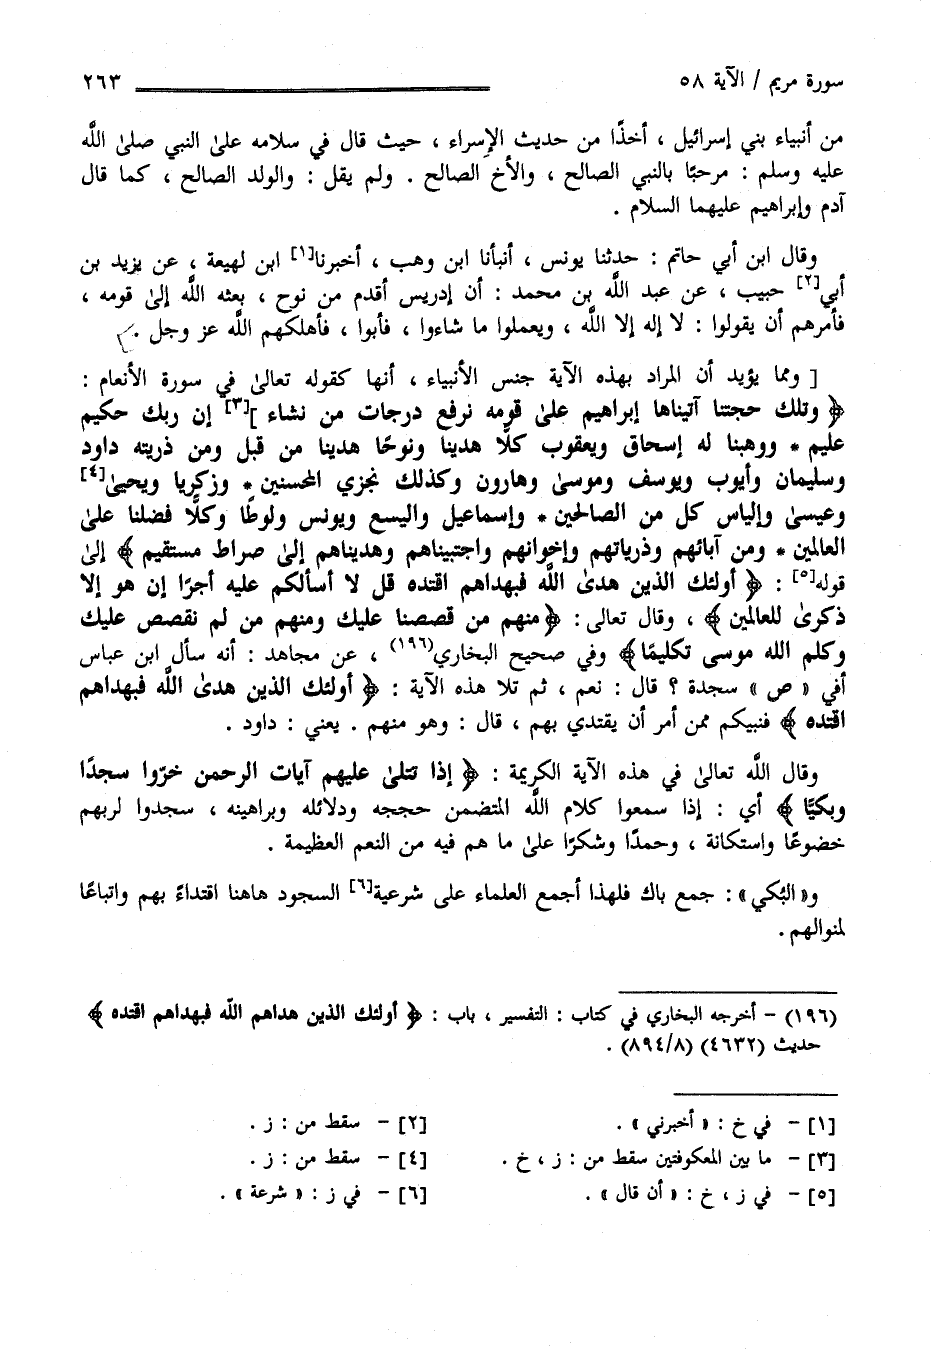 سورة مريم / الآية ٥٨ ٢٦٣
من أنبياء بني إسرائيل ، أخذًا من حديث الإسراء ، حيث قال في سلامه علىٰ النبي صلىٰ اللَّه
عليه وسلم : مرحبًا بالنبي الصالح ، والأخ الصالح . ولم يقل : والولد الصالح ، كما قال
آدم وإبراهيم عليهما السلام .
وقال ابن أبي حاتم : حدثنا يونس ، أنبأنا ابن وهب ، أخبرنا[١] ابن لهيعة ، عن يزيد بن
أبي[٢] حبيب ، عن عبد اللَّه بن محمد : أن إدريس أقدم من نوح ، بعثه اللَّه إلىٰ قومه ،
فأمرهم أن يقولوا : لا إله إلا اللَّه ، ويعملوا ما شاءوا ، فأبوا ، فأهلكهم اللَّه عز وجل .
[ ومما يؤيد أن المراد بهذه الآية جنس الأنبياء ، أنها كقوله تعالىٰ في سورة الأنعام :
﴿ وتلك حجتنا آتيناها إبراهيم علىٰ قومه نرفع درجات من نشاء ][٣] إن ربك حكيم
عليم * ووهبنا له إسحاق ويعقوب كلًّا هدينا ونوحًا هدينا من قبل ومن ذريته داود
وسليمان وأيوب ويوسف وموسىٰ وهارون وكذلك نجزي المحسنين * وزكريا ويحيىٰ[٤]
وعيسىٰ وإلياس كل من الصالحين * وإسماعيل واليسع ويونس ولوطًا وكلًّا فضلنا علىٰ
العالمين * ومن آبائهم وذرياتهم وإخوانهم واجتبيناهم وهديناهم إلىٰ صراط مستقيم ﴾ إلىٰ
قوله[٥] : ﴿ أولئك الذين هدىٰ اللَّه فبهداهم اقتده قل لا أسألكم عليه أجرًا إن هو إلا
ذكرىٰ للعالمين ﴾ ، وقال تعالى : ﴿منهم من قصصنا عليك ومنهم من لم نقصص عليك
وكلم الله موسى تكليمًا﴾ وفي صحيح البخاري(١٩٦) ، عن مجاهد : أنه سأل ابن عباس
أفي « ص » سجدة ؟ قال : نعم ، ثم تلا هذه الآية : ﴿ أولئك الذين هدىٰ اللَّه فبهداهم
اقتده ﴾ فنبيكم ممن أمر أن يقتدي بهم ، قال : وهو منهم . يعني : داود .
وقال اللَّه تعالىٰ في هذه الآية الكريمة : ﴿ إذا تتلىٰ عليهم آيات الرحمن خرّوا سجدًا
وبكيًّا ﴾ أي : إذا سمعوا كلام اللَّه المتضمن حججه ودلائله وبراهينه ، سجدوا لربهم
خضوعًا واستكانة ، وحمدًا وشكرًا علىٰ ما هم فيه من النعم العظيمة .
و« البُكي » : جمع باك فلهذا أجمع العلماء على شرعية[٦] السجود هاهنا اقتداءً بهم واتباعًا
لمنوالهم .
(١٩٦) - أخرجه البخاري في كتاب : التفسير ، باب : ﴿ أولئك الذين هداهم اللَّه فبهداهم اقتده ﴾
حديث (٤٦٣٢) (٨٩٤/٨) .
[١] - في خ : « أخبرني » . [٢] - سقط من : ز .
[٣] - ما بين المعكوفتين سقط من : ز ، خ . [٤] - سقط من : ز .
[٥] - في ز ، خ : « أن قال » . [٦] - في ز : « شرعة » .